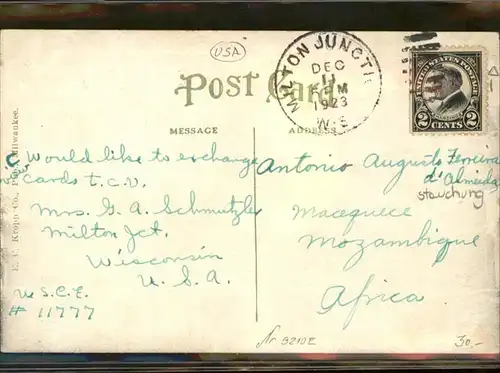 USA
POST CARD
MILTON JUNCTI
DEC
11
PM
1923
WIS
UNITED STATES POSTAGE
2 CENTS 2
MESSAGE
ADDRESS
Would like to exchange
cards t.c.v.
Mrs. G. A. Schmutzler
Milton Jct.
Wisconsin
U. S. A.
W. S. C. E.
# 11777
Antonio Augusto Ferreira
d'Almeida
stauchung
Macequece
Mozambique
Africa
E. C. Kropp Co., Milwaukee.
Nr 9210E
30,-